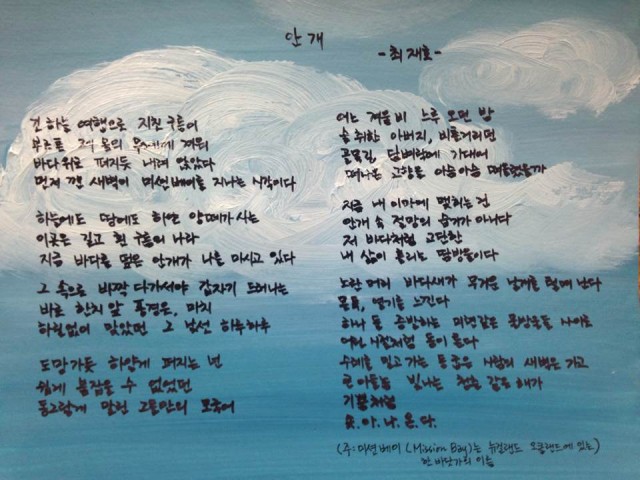 안개
-최재호-
긴 하늘 여행으로 지친 구름이
부츠로 제 몸의 무게에 겨워
바다위로 퍼지듯 내려 앉았다
먼저 깬 새벽이 미션베이를 지나는 시각이다
하늘에도 땅에도 하얀 양떼가 사는
이곳은 길고 흰 구름의 나라
지금 바다를 덮은 안개가 나를 마시고 있다
그 속으로 바짝 다가서야 갑자기 드러나는
바로 한치 앞 풍경은, 마치
하릴없이 맞았던 그 낯선 하루하루
도망가듯 하얗게 퍼지는 넌
쉽게 붙잡을 수 없었던
동그랗게 말린 그들만의 모국어
어느 겨울비 느후 오던 밤
술 취한 아버지, 비틀거리며
골목길, 담벼락에 기대어
떠나온 고향을 아슴아슴 떠올렸을까
지금 내 이마에 맺히는건
안개 속 절망의 습기가 아니다
저 바다처럼 고단한
내 삶이 흘리는 땀방울이다
노란 머리 바다새가 무거운 날개를 털며 난다
문득, 열기를 느낀다
하나 둘 증발하는 미명같은 물방울들 사이로
여린 사람처럼 동이 튼다
수레를 밀고 가는 등 굽은 사람의 새벽은 가고
큰 아들놈 빛나는 청춘 같은 해가
기쁨처럼
솟.아.나.온.다.
(주: 미션베이 (Mission Bay)는 뉴질랜드 오클랜드에 있는)
한 바닷가의 이름